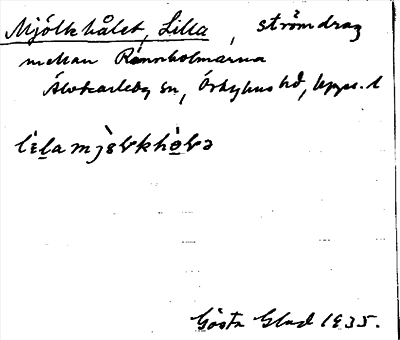 Mjölkhålet, Lilla, strömdrag
mellan Rönnholmarna
Älvkarleby sn, Örbyhus hd, Upps. l
Gösta Glad 1935.